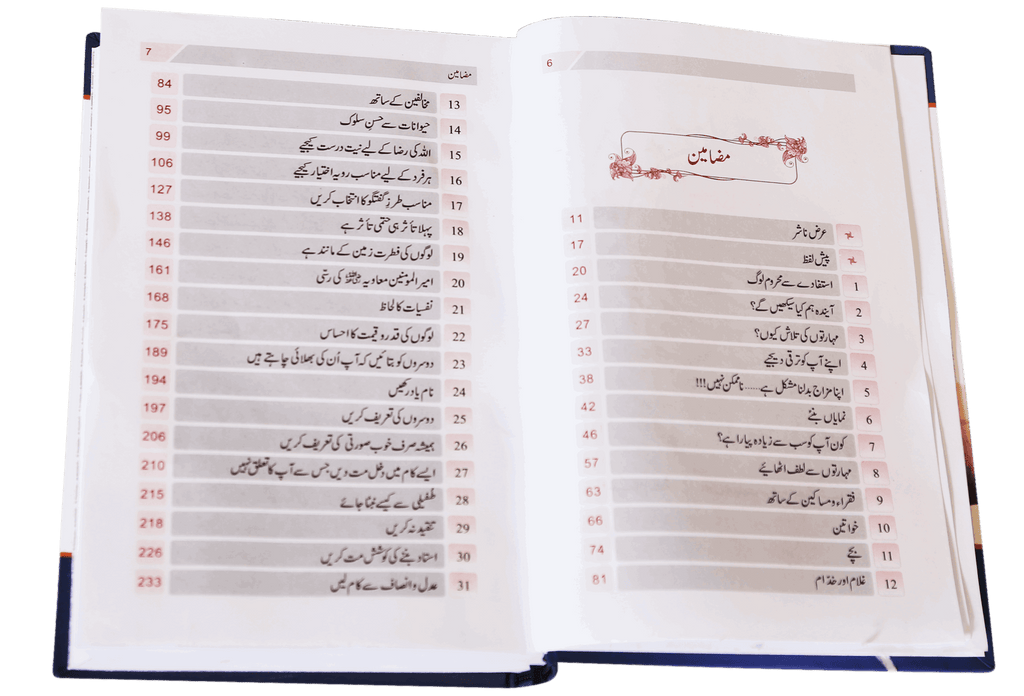 6
مضامین
عرض ناشر 11
پیش لفظ 17
1 استفادے سے محروم لوگ 20
2 آیندہ ہم کیا سیکھیں گے؟ 24
3 مہارتوں کی تلاش کیوں؟ 27
4 اپنے آپ کو ترقی دیجیے 33
5 اپنا مزاج بدلنا مشکل ہے...... ناممکن نہیں!!! 38
6 نمایاں بنئے 42
7 کون آپ کو سب سے زیادہ پیارا ہے؟ 46
8 مہارتوں سے لطف اٹھائیے 57
9 فقراء و مساکین کے ساتھ 63
10 خواتین 66
11 بچے 74
12 غلام اور خدّام 81
مضامین 7
13 مخالفین کے ساتھ 84
14 حیوانات سے حسنِ سلوک 95
15 اللہ کی رضا کے لیے نیت درست کیجیے 99
16 ہر فرد کے لیے مناسب رویہ اختیار کیجیے 106
17 مناسب طرزِ گفتگو کا انتخاب کریں 127
18 پہلا تأثر ہی حتمی تأثر ہے 138
19 لوگوں کی فطرت زمین کے مانند ہے 146
20 امیر المؤمنین معاویہ رضی اللہ عنہ کی رسّی 161
21 نفسیات کا لحاظ 168
22 لوگوں کی قدر و قیمت کا احساس 175
23 دوسروں کو بتائیں کہ آپ اُن کی بھلائی چاہتے ہیں 189
24 نام یاد رکھیں 194
25 دوسروں کی تعریف کریں 197
26 ہمیشہ صرف خوب صورتی کی تعریف کریں 206
27 ایسے کام میں دخل مت دیں جس سے آپ کا تعلق نہیں 210
28 طفیلی سے کیسے نمٹا جائے 215
29 تنقید نہ کریں 218
30 استاد بننے کی کوشش مت کریں 226
31 عدل و انصاف سے کام لیں 233